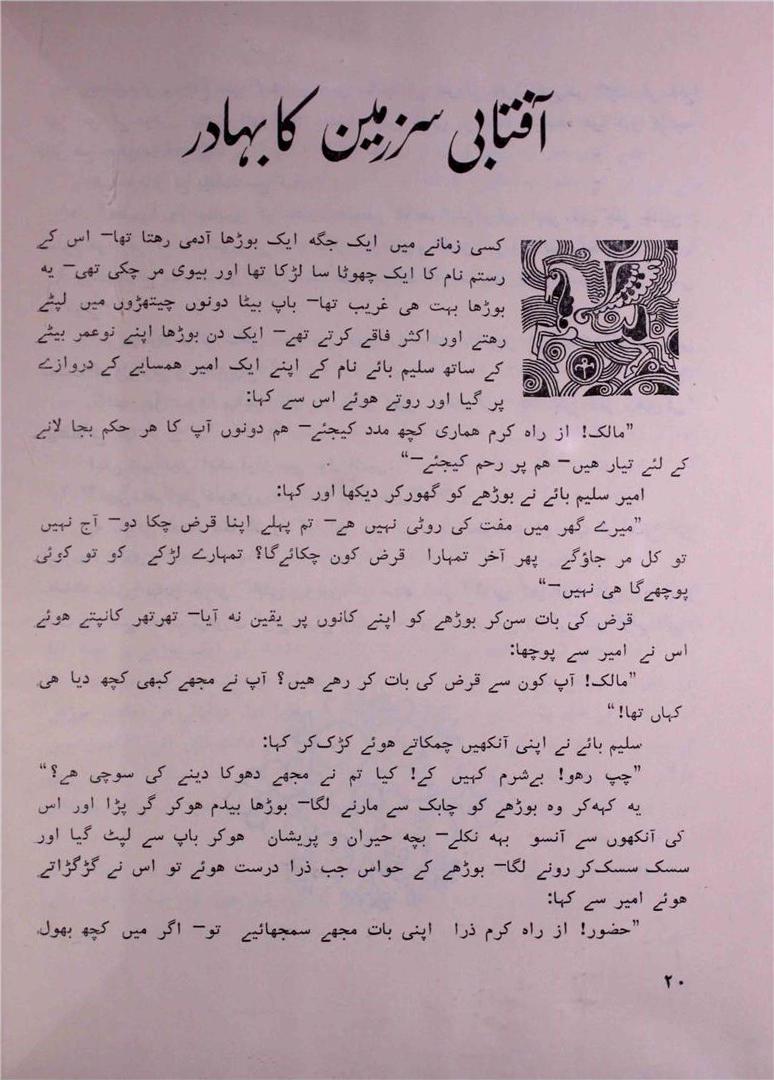 آفتابی سرزمین کا بہادر
کسی زمانے میں ایک جگه ایک بوڑھا آدمی رهتا تھا— اس کے
رستم نام کا ایک چھوٹا سا لڑکا تھا اور بیوی مر چکی تھی— یه
بوڑھا بہت هی غریب تھا— باپ بیٹا دونوں چیتھڑوں میں لپٹے
رهتے اور اکثر فاقے کرتے تھے— ایک دن بوڑھا اپنے نوعمر بیٹے
کے ساتھ سلیم بائے نام کے اپنے ایک امیر همسایے کے دروازے
پر گیا اور روتے هوئے اس سے کہا:
”مالک! از راه کرم هماری کچھ مدد کیجئے— هم دونوں آپ کا هر حکم بجا لانے
کے لئے تیار هیں— هم پر رحم کیجئے—“
امیر سلیم بائے نے بوڑھے کو گھورکر دیکھا اور کہا:
”میرے گھر میں مفت کی روٹی نہیں هے— تم پہلے اپنا قرض چکا دو— آج نہیں
تو کل مر جاؤگے پھر آخر تمہارا قرض کون چکائےگا؟ تمہارے لڑکے کو تو کوئی
پوچھےگا هی نہیں—“
قرض کی بات سن‌کر بوڑھے کو اپنے کانوں پر یقین نه آیا— تھرتھر کانپتے هوئے
اس نے امیر سے پوچھا:
”مالک! آپ کون سے قرض کی بات کر رهے هیں؟ آپ نے مجھے کبھی کچھ دیا هی
کہاں تھا!“
سلیم بائے نے اپنی آنکھیں چمکاتے هوئے کڑک‌کر کہا:
”چپ رهو! بےشرم کہیں کے! کیا تم نے مجھے دھوکا دینے کی سوچی هے؟“
یه کہه‌کر وه بوڑھے کو چابک سے مارنے لگا— بوڑھا بیدم هوکر گر پڑا اور اس
کی آنکھوں سے آنسو بہه نکلے— بچه حیران و پریشان هوکر باپ سے لپٹ گیا اور
سسک سسک‌کر رونے لگا— بوڑھے کے حواس جب ذرا درست هوئے تو اس نے گڑگڑاتے
هوئے امیر سے کہا:
”حضور! از راه کرم ذرا اپنی بات مجھے سمجھائیے تو— اگر میں کچھ بھول
۲۰